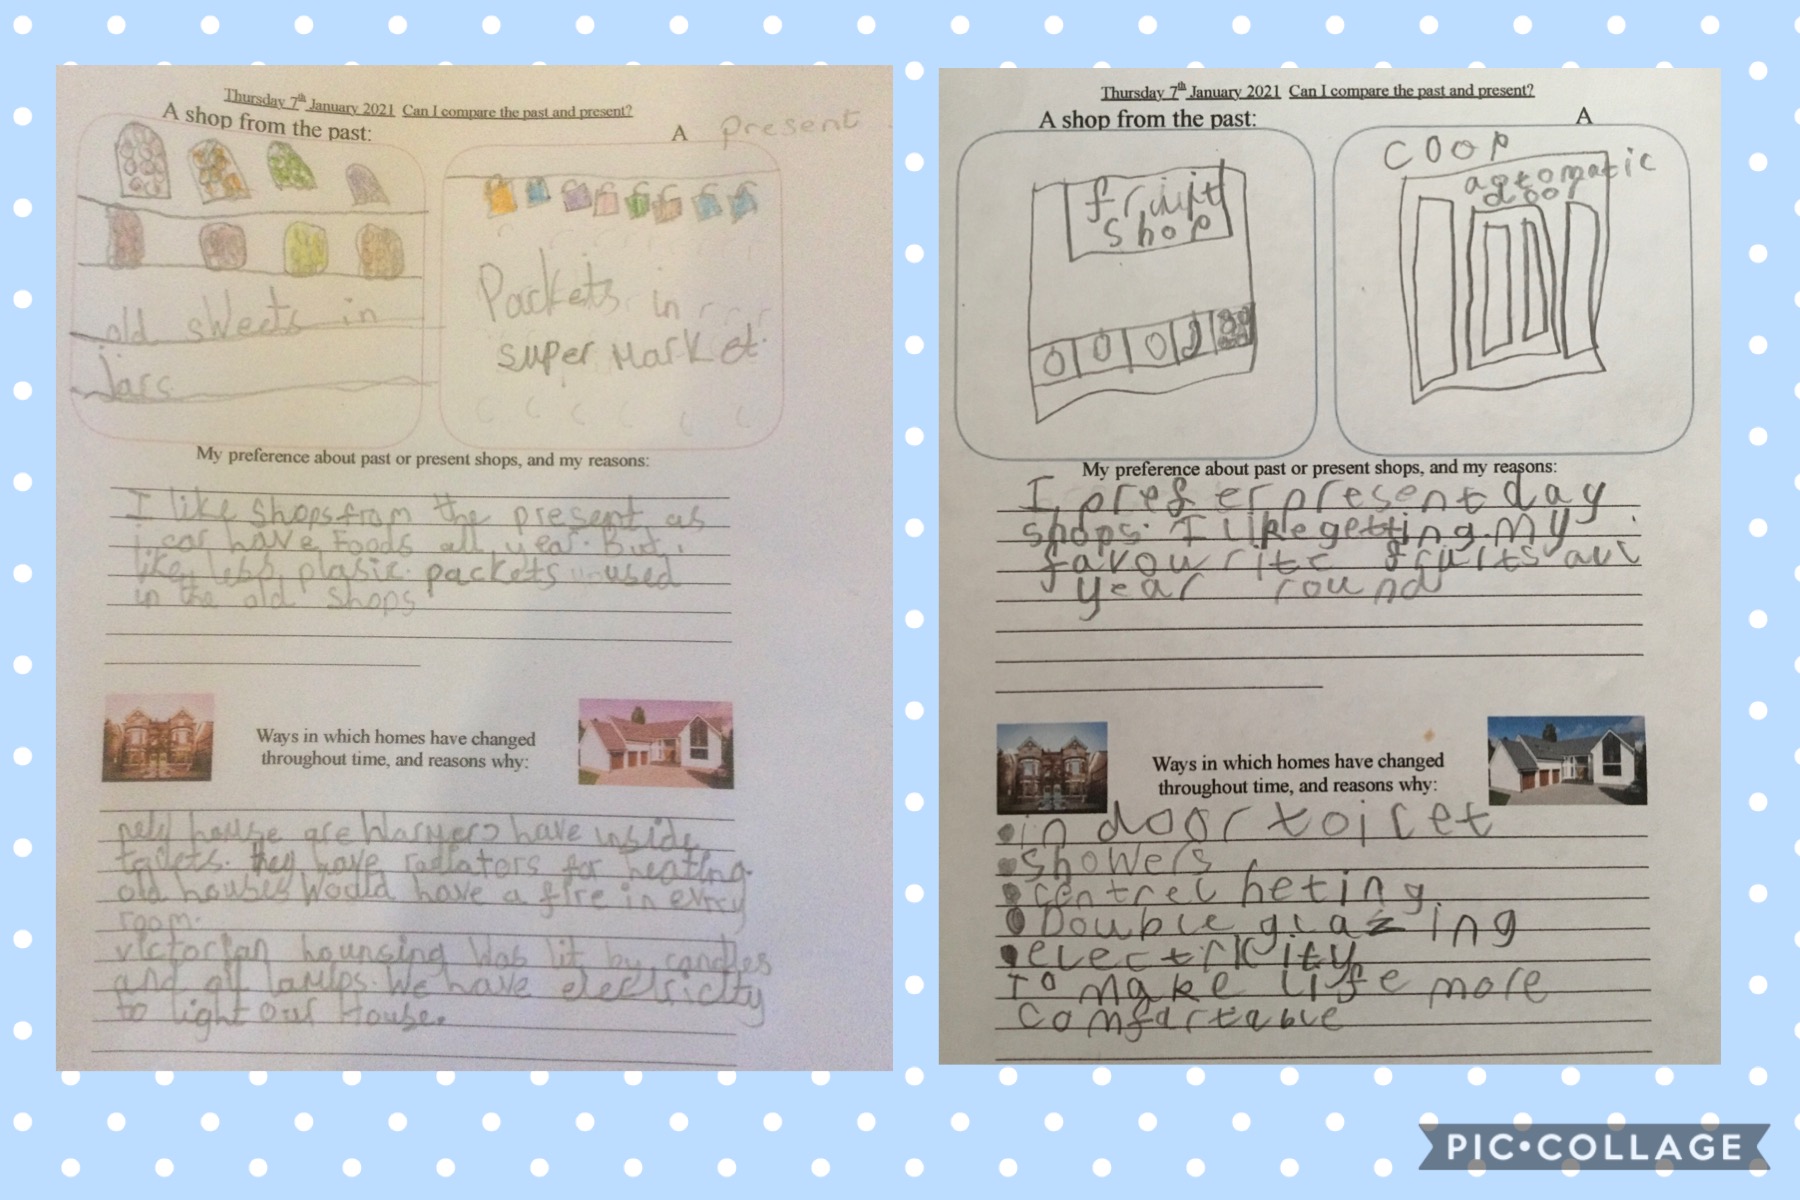 Thursday 7th January 2021 Can I compare the past and present?
A shop from the past:
A present
old sweets in
Jars
Packets in
super Market.
My preference about past or present shops, and my reasons:
I like shops from the present as
i can have Foods all year. But i
like less plasic packets used
in the old shops
Ways in which homes have changed
throughout time, and reasons why:
new house are warmer have inside
toilets. they have radiators for heating.
old houses would have a fire in every
room.
victorian hounsing was lit by candles
and oil lamps. We have electricity
to light our House.
Thursday 7th January 2021 Can I compare the past and present?
A shop from the past:
A
fruit
shop
coop
automatic
doo
My preference about past or present shops, and my reasons:
I prefer present day
shops. I like getting my
favourite fruits all
year round
Ways in which homes have changed
throughout time, and reasons why:
• in door toilet
• showers
• centrel heting.
• Double glazing
• electricity
To make life more
comfartable
PIC•COLLAGE